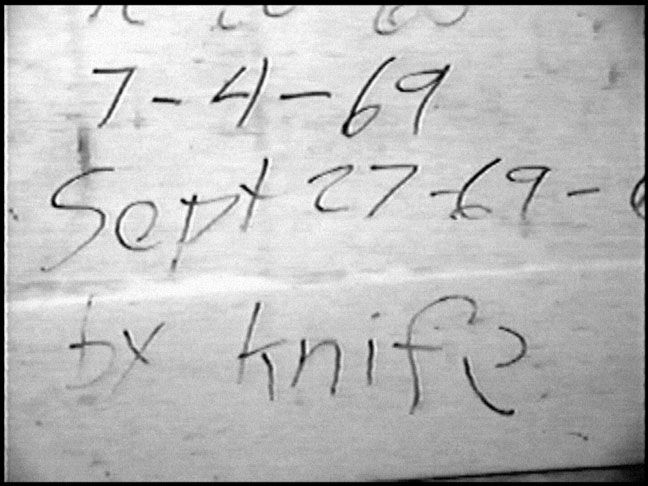 7-4-69
Sept 27-69-
by knife